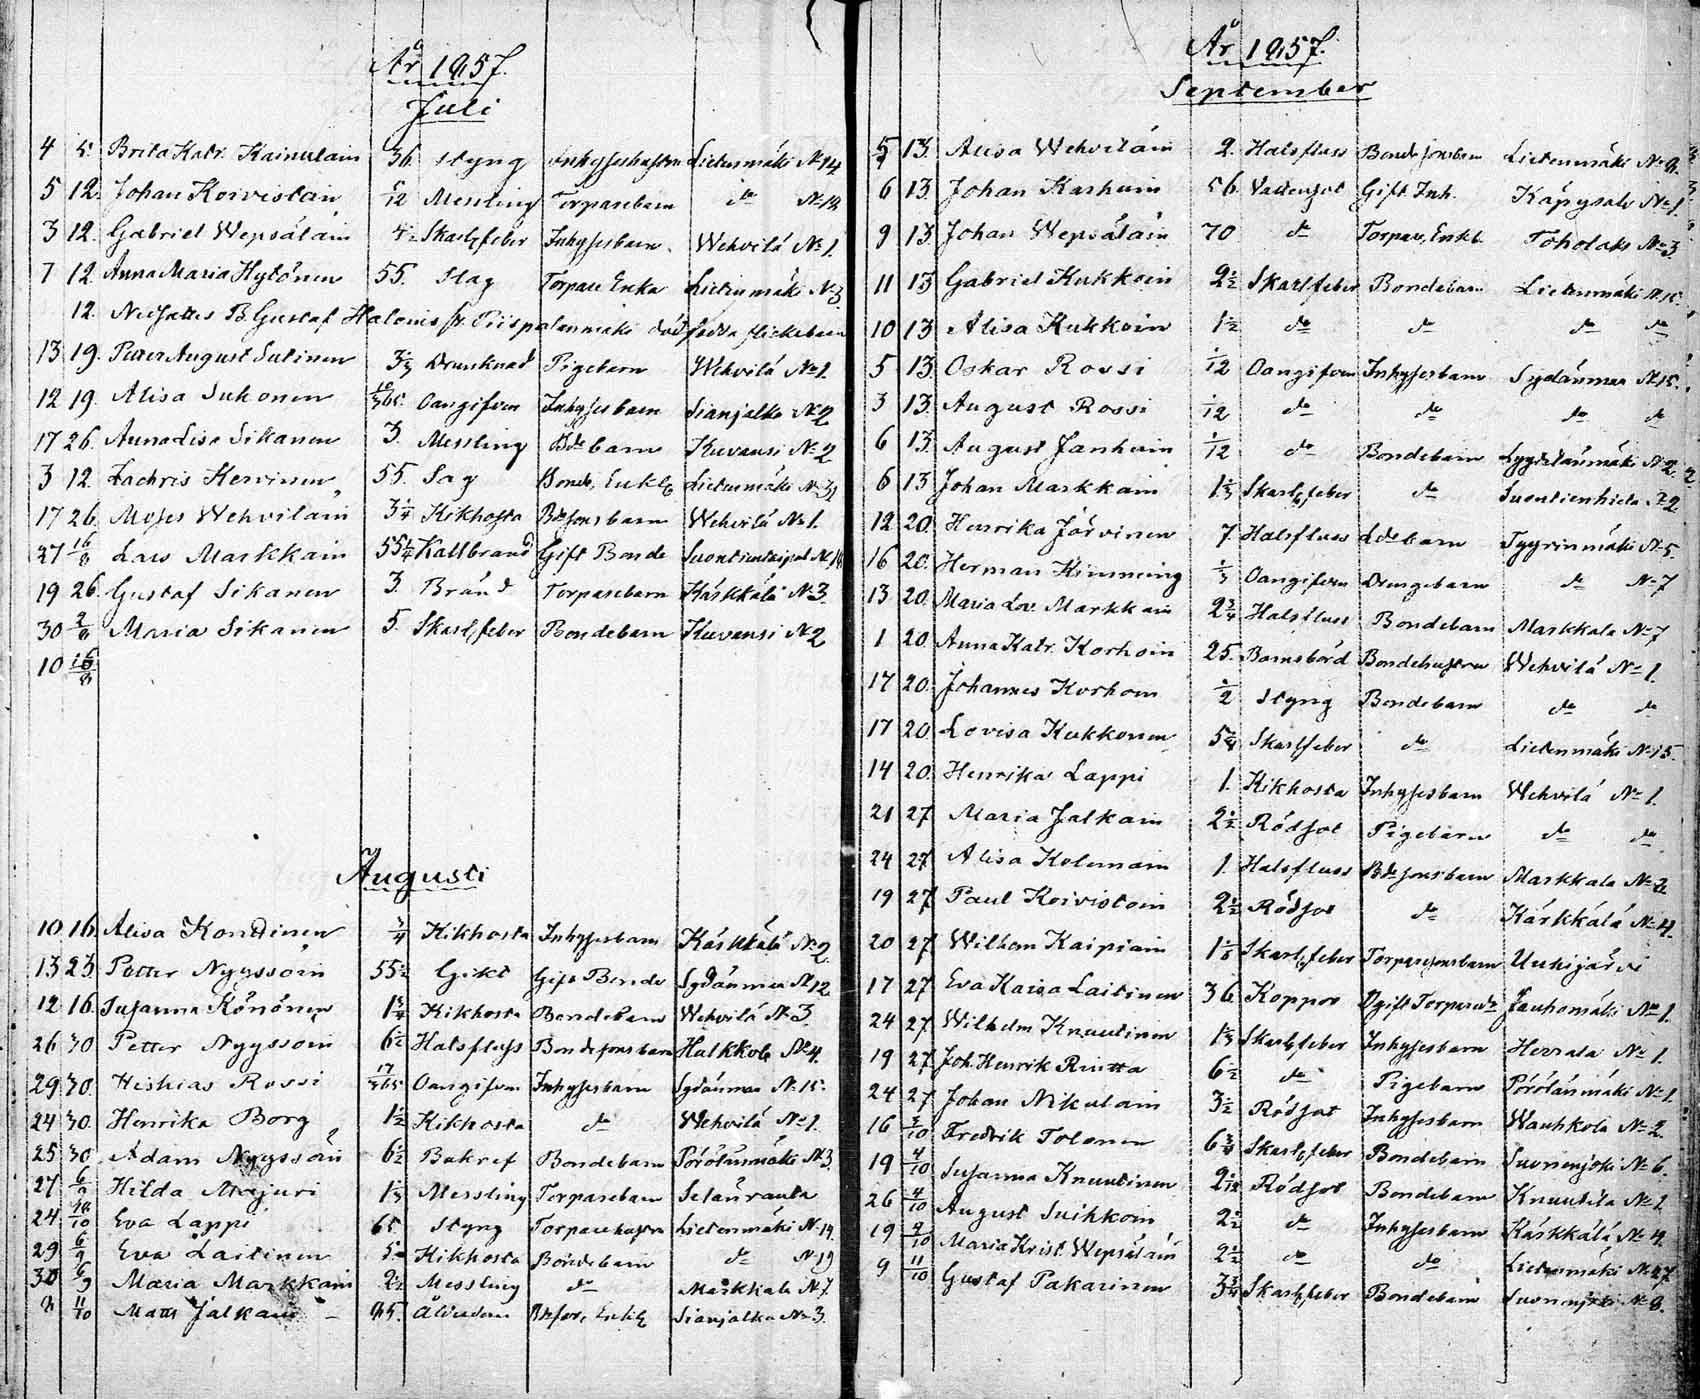 År 1857.
Juli
4 5 Brita Katr. Kainulain 36 Styng Inhyseshustru Lietenmäki No 14
5 12. Johan Koivistain Messling Torparebarn do No 18
3 12. Gabriel Wepsäläin Skarl.feber Inhysesbarn Wehvilä No 1.
7 12. Anna Maria Hytönen 55. Slag Torpare Enka Lietenmäki No 3
12. Gustaf Halonis fr. Piispalanmäki dödfödda flickebarn
13 19. Petter August Sutinen Drunknad Pigebarn Wehvilä No 1.
12 19. Alisa Suhonen Oangifven Inhysesbarn Sianjalka No 2
17 26. Anna Lisa Sikanen 3. Messling Bde barn Kuvansi No 2
3 12. Zachris Kervinen 55. Slag Bonde, Enkl. Lietenmäki No 31
17 26. Moses Wehviläin 3 1/4 Kikhosta Bdesonsbarn Wehvilä No 1.
27 16/8 Lars Markkain 55 1/4 Kallbrand Gift Bonde Suontientaipal No 18
19 26. Gustaf Sikanen 3. Bränd Torparebarn Kärkkälä No 3.
30 2/8 Maria Sikanen 5. Skarl.feber Bondebarn Kuvansi No 2
10 16/8
Augusti
10 16. Alisa Kondinen 3/4 Kikhosta Inhysesbarn Kärkkälä No 2
13 23. Petter Nyyssöin 55 1/2 Gikt Gift Bonde Sydänmaa No 12
12 16. Susanna Könönen 1 3/4 Kikhosta Bondebarn Wehvilä No 3.
26 30 Petter Nyyssöin 6 1/2 Halsfluss Bondesonsbarn Halkkola No 4.
29 30. Heskias Rossi 17/365 Oangifven Inhysesbarn Sydänmaa No 15.
24 30. Henrika Borg 1 1/2 Kikhosta do Wehvilä No 1.
25 30 Adam Nyyssöin 6 1/2 Bukref Bondebarn Pörölänmäki No 3.
27 6/9 Hilda Majuri 1 1/3 Messling Torparebarn Selänranta
24 Eva Lappi 65 Styng Torparehustru Lietenmäki No 14.
29 6/9 Eva Laitinen Kikhosta Bondebarn do No 19
30 6/9 Maria Markkain 2 1/2 Messling do Markkala No 7
11/10 Matts Jalkain Ålderdom Enkl. Sianjalka No 3.
År 1857.
September
5 13. Alisa Wehviläin 2. Halsfluss Bondesonsbarn Lietenmäki No 9.
6 13. Johan Karhuin 56. Vattusot Gift Inh. Käpysalo No 1.
9 13. Johan Wepsäläin 70 do Torpar, Enkl. Toholaks No 3.
11 13 Gabriel Kukkoin 2 1/2 Skarl.feber Bondebarn Lietenmäki No 15.
10 13 Alisa Kukkoin 1 1/2 do do do do
5 13 Oskar Rossi 1/12 Oangifven Inhysesbarn Sydänmaa No 15.
3 13. August Rossi 1/12 do do do do
6 13. August Janhuin 1/12 do Bondebarn No 2.
6 13 Johan Markkain 1 1/3 Skarl.feber do Suontienhieta No 2
12 20. Henrika Järvinen 7. Halsfluss barn Tyyrinmäki No 5.
16 20. Herman Kinnuing 1/3 Oangifven Drengebarn do No 7
13 20. Maria Lov. Markkain 2 3/4 Halsfluss Bondebarn Markkala No 7
1 20. Anna Katr. Korhoin 25. Barnsbörd Bondehustru Wehvilä No 1.
17 20. Johannes Korhoin 1/2 Styng Bondebarn do do
17 20. Lovisa Kukkonen Skarl.feber do Lietenmäki No 15.
14 20. Henrika Lappi 1. Kikhosta Inhysesbarn Wehvilä No 1.
21 27 Maria Jalkain 2 1/2 Rödsot Pigebarn do do
24 27. Alisa Kolemain 1. Halsfluss Bdesonsbarn Markkala No 2
19 27 Paul Koivistoin 2 1/2 Rödsot do Kärkkälä No 4.
20 27 Wilhem Kaipiain Skarl.feber Torparesonsbarn Uuhijärvi
17 27 Eva Kaisa Laitinen 36 Koppor Ogift Jauhomäki No 1.
24 27 Wilhelm Knuutinen 1 1/3 Skarl.feber Inhysesbarn Herrala No 1.
19 27 Joh. Henrik Riutta 6 1/2 do Pigebarn Pörölänmäki No 1.
24 27 Johan Nikulain 3 1/2 Rödsot Inhysesbarn Wauhkola No 2.
16 Fredrik Tolonen 6 3/4 Skarl.feber Bondebarn Suonenjoki No 6.
19 4/10 Susanna Knuutinen Rödsot Bondebarn Knuutila No 1
26 4/10 August Suihkoin 2 1/2 do Inhysesbarn Kärkkälä No 4.
19 Maria Krist. Wepsäläin 2 1/2 do do Lietenmäki No 27
9 11/10 Gustaf Pakarinen 3 3/4 Skarl.feber Bondebarn Suonenjoki No 8.